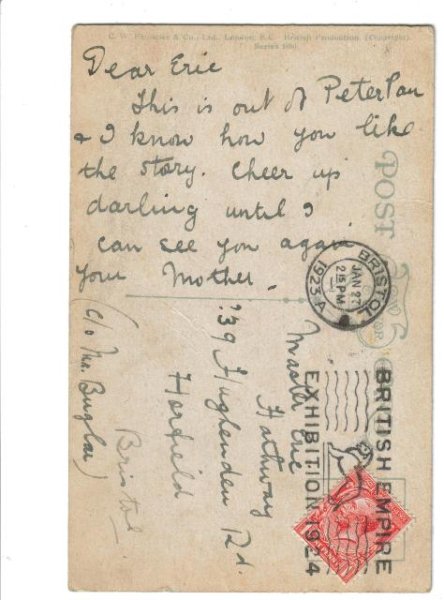 C. W. Faulkner & Co., Ltd., London, E.C. British Production. (Copyright)
Series
Dear Eric
This is out of Peter Pan
& I know how you like
the story. Cheer up
darling until I
can see you again
your Mother.
POST
BRISTOL
JAN 27
2 15 PM
1923
A
BRITISH EMPIRE
EXHIBITION 1924
Master Eric
Hathway
39 Hughenden Rd.
Horfield
Bristol
(c/o Mrs. )